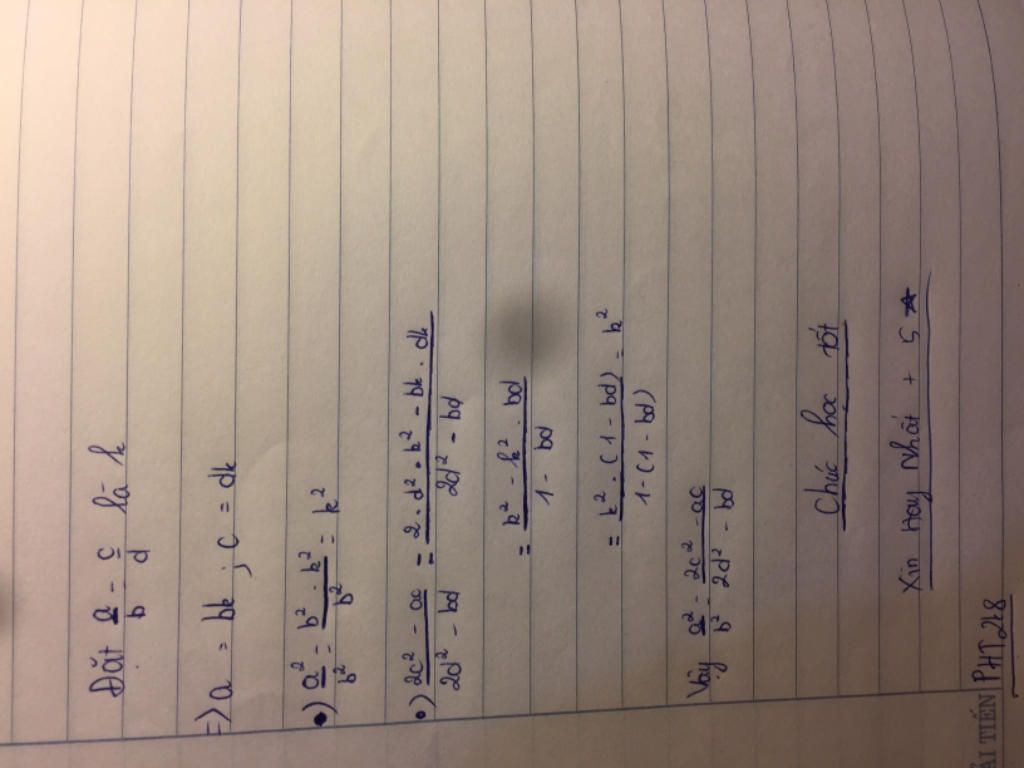 Đặt a/b = c/d là k
=> a = bk ; c = dk
•) a²/b² = b² . k²/b² = k²
•) 2c² - ac/2d² - bd = 2 . d² . k² - bk . dk/2d² - bd
= k² - k² . bd/1 - bd
= k² . (1 - bd)/1 - (1 - bd) = k²
Vậy a²/b² = 2c² - ac/2d² - bd
Chúc học tốt
Xin Hay Nhất + 5 ★
ẢI TIẾN PHT218